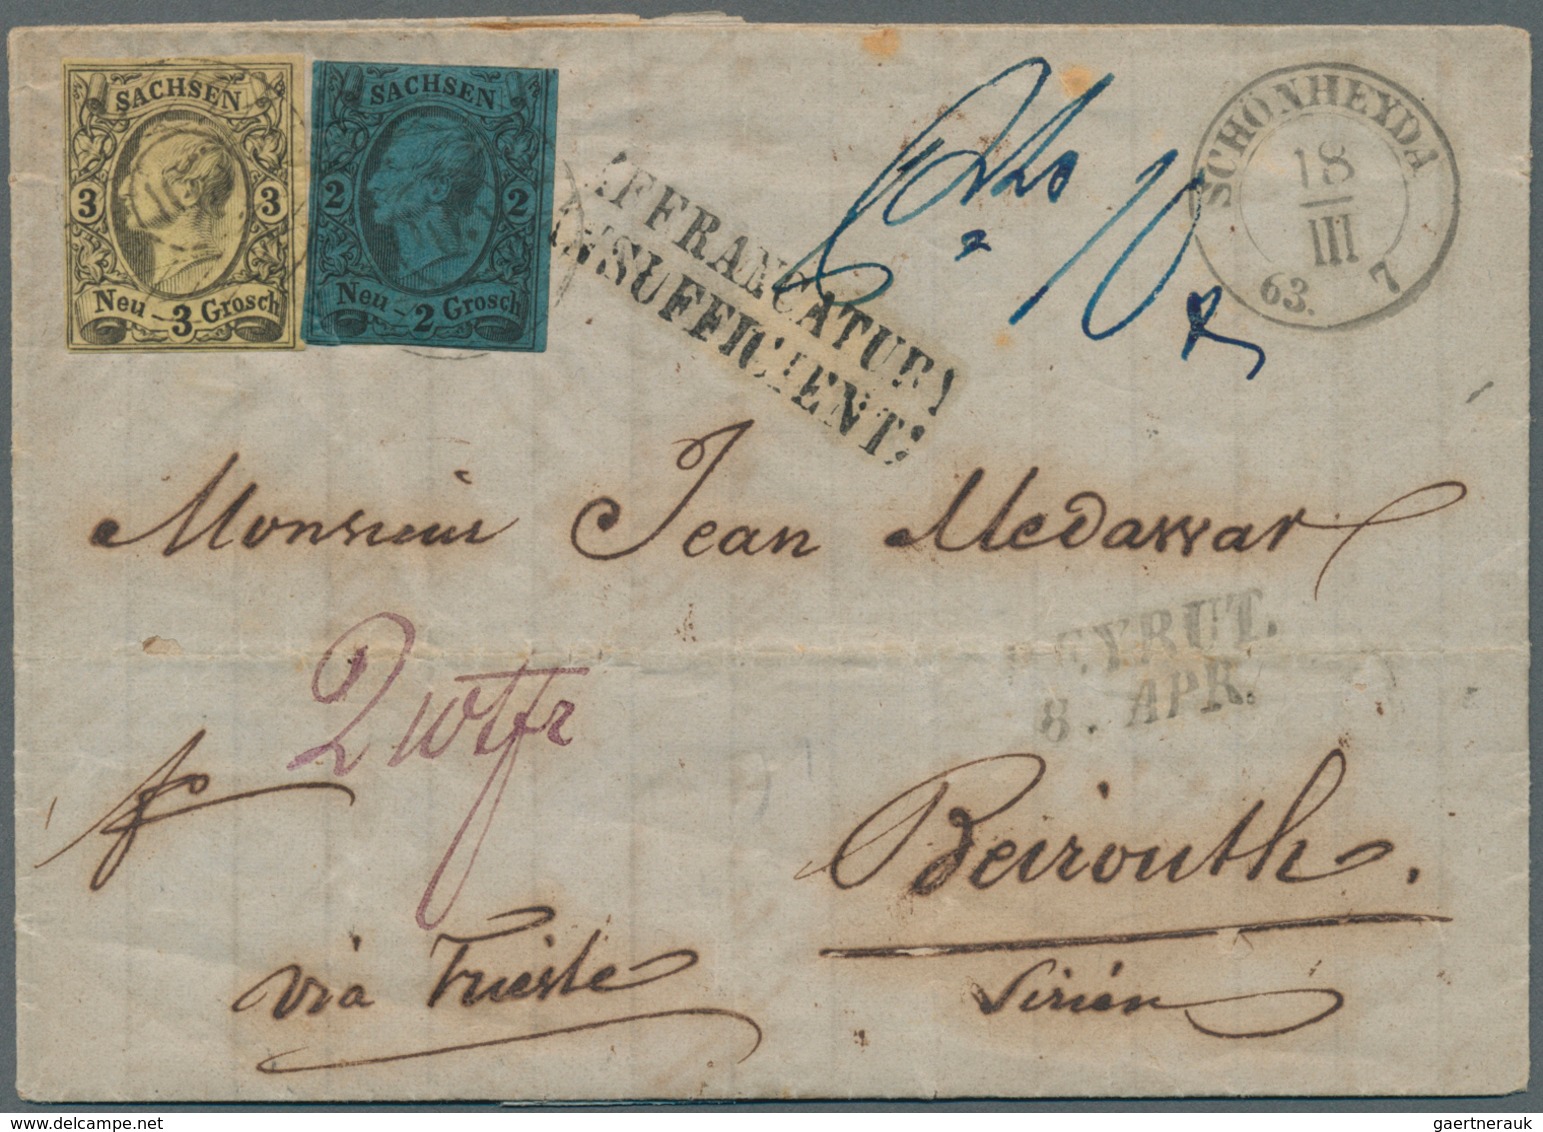 SACHSEN
3 3
Neu - 3 Grosch
SACHSEN
2 2
Neu - 2 Grosch
AFFRANCATUR
INSUFFICIENT:
SCHÖNHEYDA
18
III
63. 7
Monsieur Jean Medawar
BEYRUT.
8. APR.
2 wtfr
Beirouth.
via Trieste
Sirien
gaertnerauk@hotmail.com